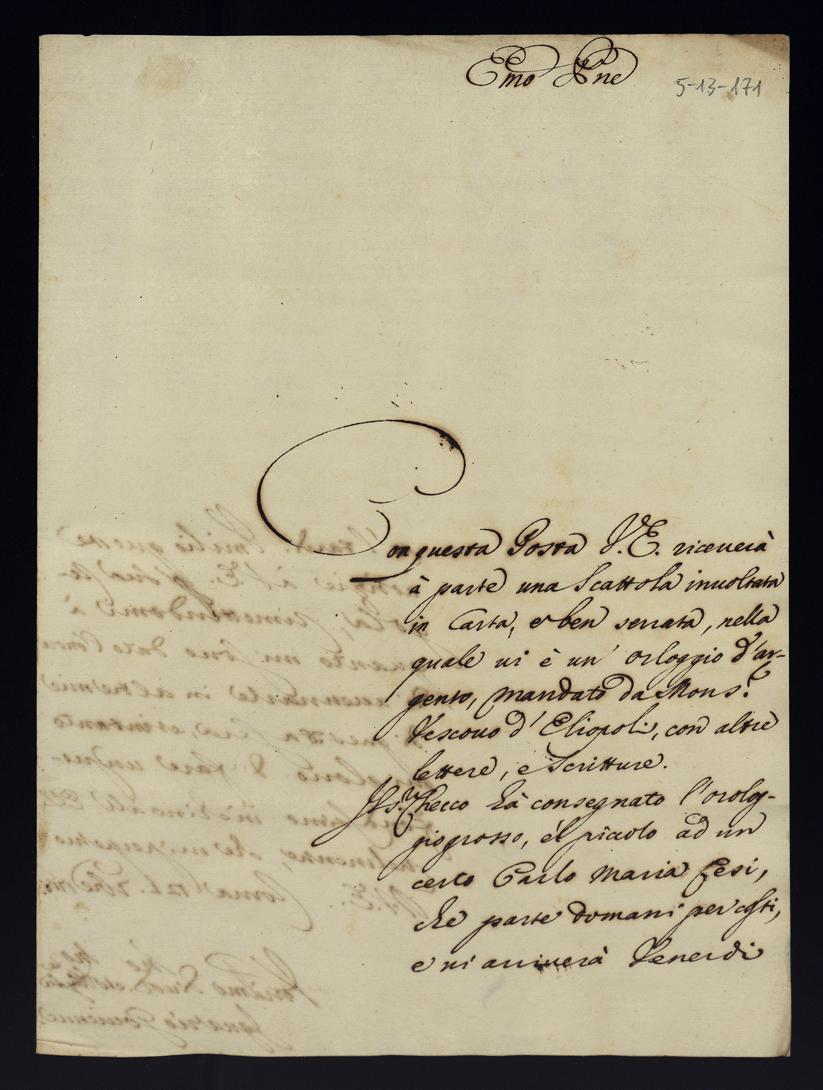 Emo Pne
5-13-171
Con questa Posta V.E. riceuerà
à parte una Scattola inuoltata
in Carta, e ben serrata, nella
quale ui è un' orloggio d'ar-
gento, mandato da Mons.r
Vescouo d'Eliopoli, con altre
lettere, e Scritture.
Il s.r Checco hà consegnato l'orolog-
gio grosso, e'l piccolo ad un
certo Carlo Maria Fesi,
che parte domani per costi,
e ui arriuerà Venerdi